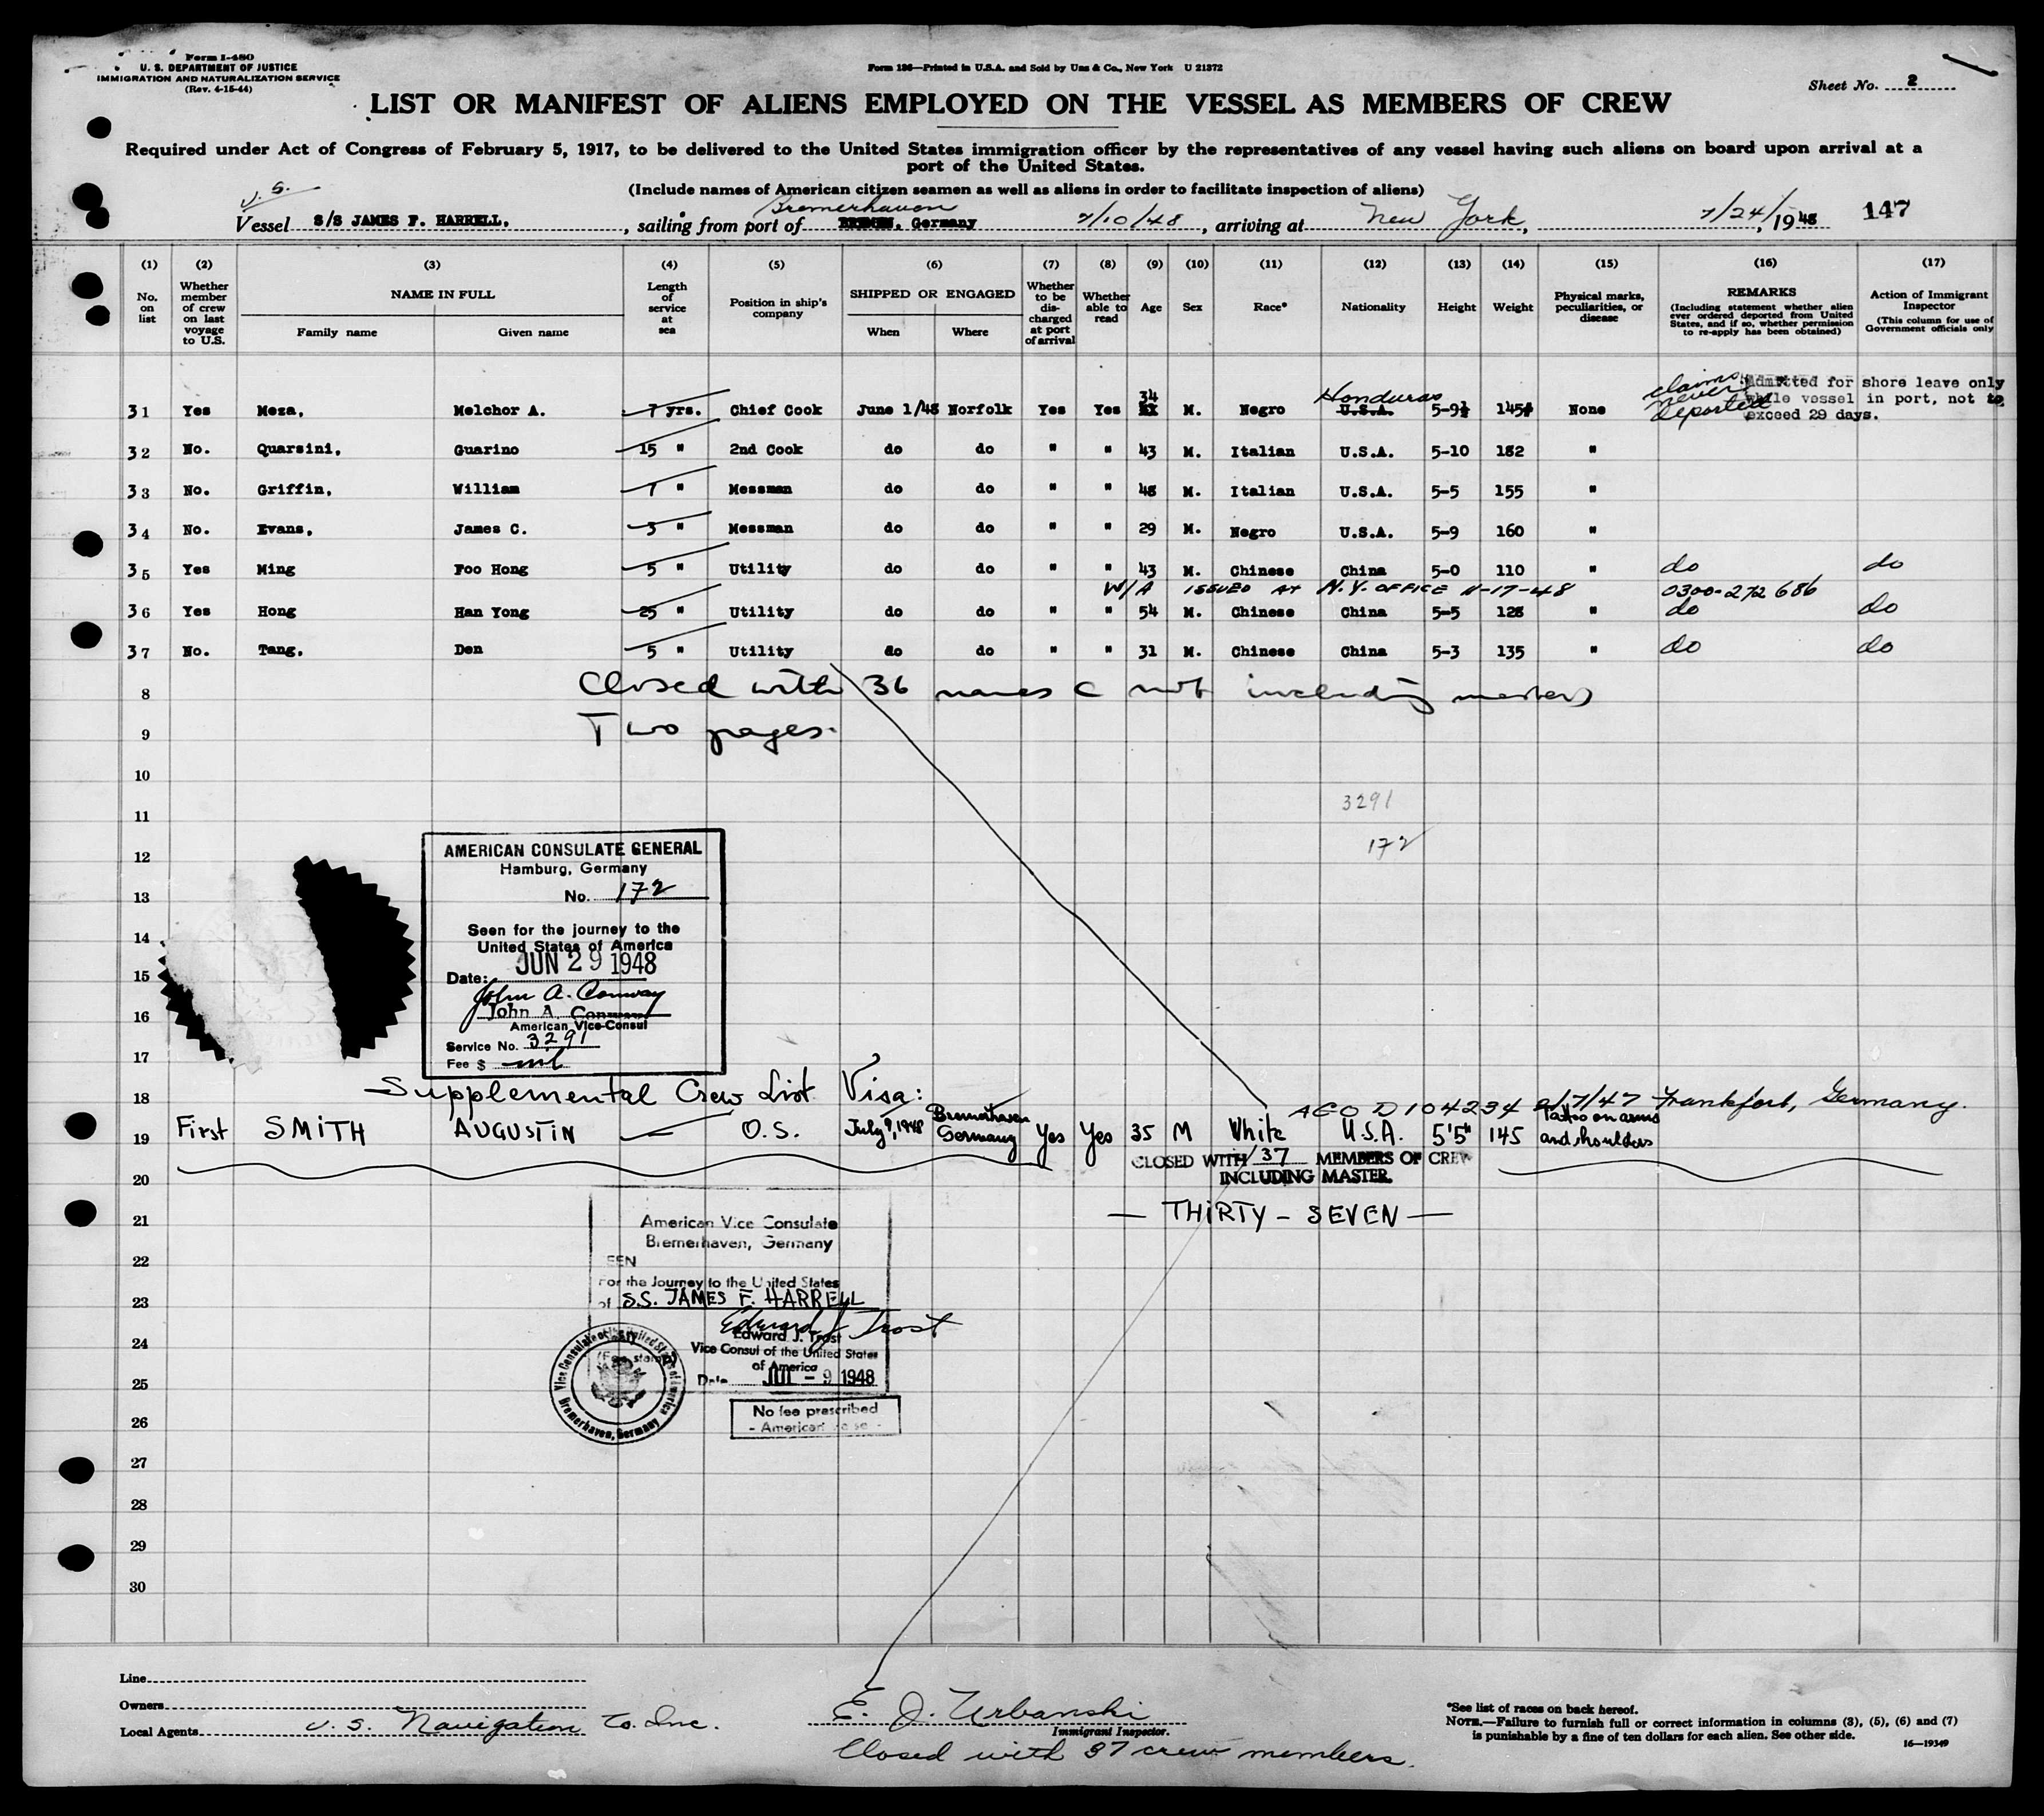 Form I-480
U. S. DEPARTMENT OF JUSTICE
IMMIGRATION AND NATURALIZATION SERVICE
(Rev. 4-15-44)
Form 136—Printed in U.S.A. and Sold by Unz & Co., New York U 21372
Sheet No. 2
LIST OR MANIFEST OF ALIENS EMPLOYED ON THE VESSEL AS MEMBERS OF CREW
Required under Act of Congress of February 5, 1917, to be delivered to the United States immigration officer by the representatives of any vessel having such aliens on board upon arrival at a
port of the United States.
(Include names of American citizen seamen as well as aliens in order to facilitate inspection of aliens)
U.S.
Bremerhaven
Vessel S/S JAMES F. HARRELL, , sailing from port of BREMEN, Germany 7/10/48 , arriving at New York, 7/24/, 1948 147
(1) (2) (3) (4) (5) (6) (7) (8) (9) (10) (11) (12) (13) (14) (15) (16) (17)
No. on list
Whether member of crew on last voyage to U.S.
NAME IN FULL
Family name
Given name
Length of service at sea
Position in ship's company
SHIPPED OR ENGAGED
When
Where
Whether to be discharged at port of arrival
Whether able to read
Age
Sex
Race*
Nationality
Height
Weight
Physical marks, peculiarities, or disease
REMARKS
(Including statement whether alien ever ordered deported from United States, and if so, whether permission to re-apply has been obtained)
Action of Immigrant Inspector
(This column for use of Government officials only
34 Honduras claims never deported Admitted for shore leave only while vessel in port, not to exceed 29 days.
31 Yes Meza, Melchor A. 7 yrs. Chief Cook June 1/48 Norfolk Yes Yes M. Negro U.S.A. 5-9½ 145# None
32 No. Quarsini, Guarino 15 " 2nd Cook do do " " 43 M. Italian U.S.A. 5-10 182 "
33 No. Griffin, William 7 " Messman do do " " 48 M. Italian U.S.A. 5-5 155 "
34 No. Evans, James C. 3 " Messman do do " " 29 M. Negro U.S.A. 5-9 160 "
35 Yes Ming Foo Hong 5 " Utility do do " " 43 M. Chinese China 5-0 110 " do do
W/A ISSUED AT N.Y. OFFICE 11-17-48 0300-272686
36 Yes Hong Han Yong 25 " Utility do do " " 54 M. Chinese China 5-5 128 " do do
37 No. Tang, Den 5 " Utility do do " " 31 M. Chinese China 5-3 135 " do do
8 Closed with 36 names ( not including master)
9 Two pages.
10
11 3291
172
12
13
14
15
16
17
AMERICAN CONSULATE GENERAL
Hamburg, Germany
No. 172
Seen for the journey to the
United States of America
Date: JUN 29 1948
John A. Conway
John A. Conway
American Vice-Consul
Service No. 3291
Fee $ nil
18 Supplemental Crew List Visa:
AGO D104234 2/7/47 Frankfort, Germany.
19 First SMITH AUGUSTIN O.S. July 9, 1948 Bremerhaven Germany Yes Yes 35 M White U.S.A. 5'5" 145 Tattoo on arms and shoulders
CLOSED WITH 37 MEMBERS OF CREW
INCLUDING MASTER.
20
21 — THIRTY - SEVEN —
22
23
24
25
26
27
28
29
30
American Vice Consulate
Bremerhaven, Germany
EEN
For the Journey to the United States
of S.S. JAMES F. HARRELL
Edward J. Trost
Edward J. Trost
Vice Consul of the United States
of America
Date JUL - 9 1948
(Fee stamp)
Vice Consulate of the United States of America
Bremerhaven, Germany
No fee prescribed
- American
Line
Owners
Local Agents U.S. Navigation Co. Inc.
E. J. Urbanski
Immigrant Inspector.
Closed with 37 crew members.
*See list of races on back hereof.
NOTE.—Failure to furnish full or correct information in columns (3), (5), (6) and (7)
is punishable by a fine of ten dollars for each alien. See other side.
16—19349